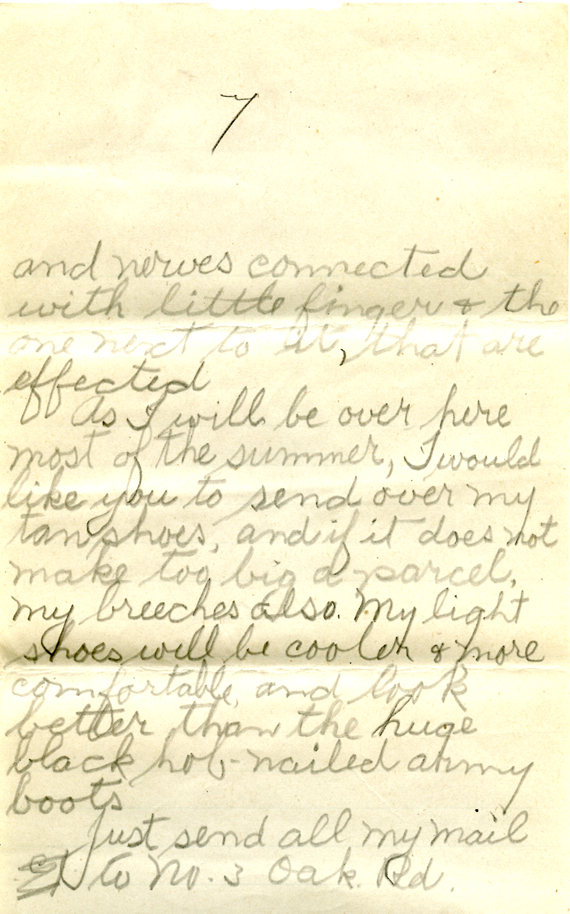 7
and nerves connected
with little finger & the
one next to it, that are
effected
As I will be over here
most of the summer, I would
like you to send over my
tan shoes, and if it does not
make too big a parcel,
my breeches also. My light
shoes will be cooler & more
comfortable, and look
better than the huge
black hob-nailed army
boots
Just send all my mail
to No. 3 Oak Rd.